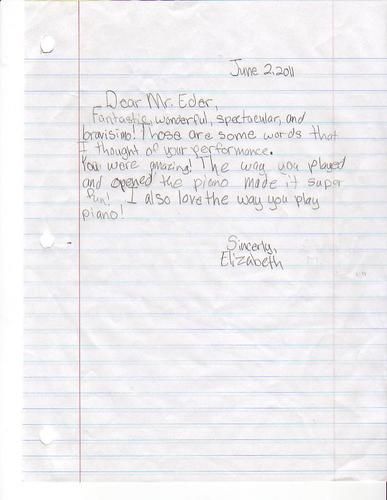 June 2, 2011
Dear Mr. Eder,
Fantastic, wonderful, spectacular, and
bravisimo! Those are some words that
I thought of your performance.
You were amazing! The way you played
and opened the piano made it super
fun! I also love the way you play
piano!
Sincerly,
Elizabeth